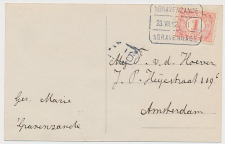 'SGRAVENZANDE
'SGRAVENHAGE
Mej. v. d. Hoeven
J. P. Heijestraat 119
Amsterdam
Ger. Marie
Gravenzande